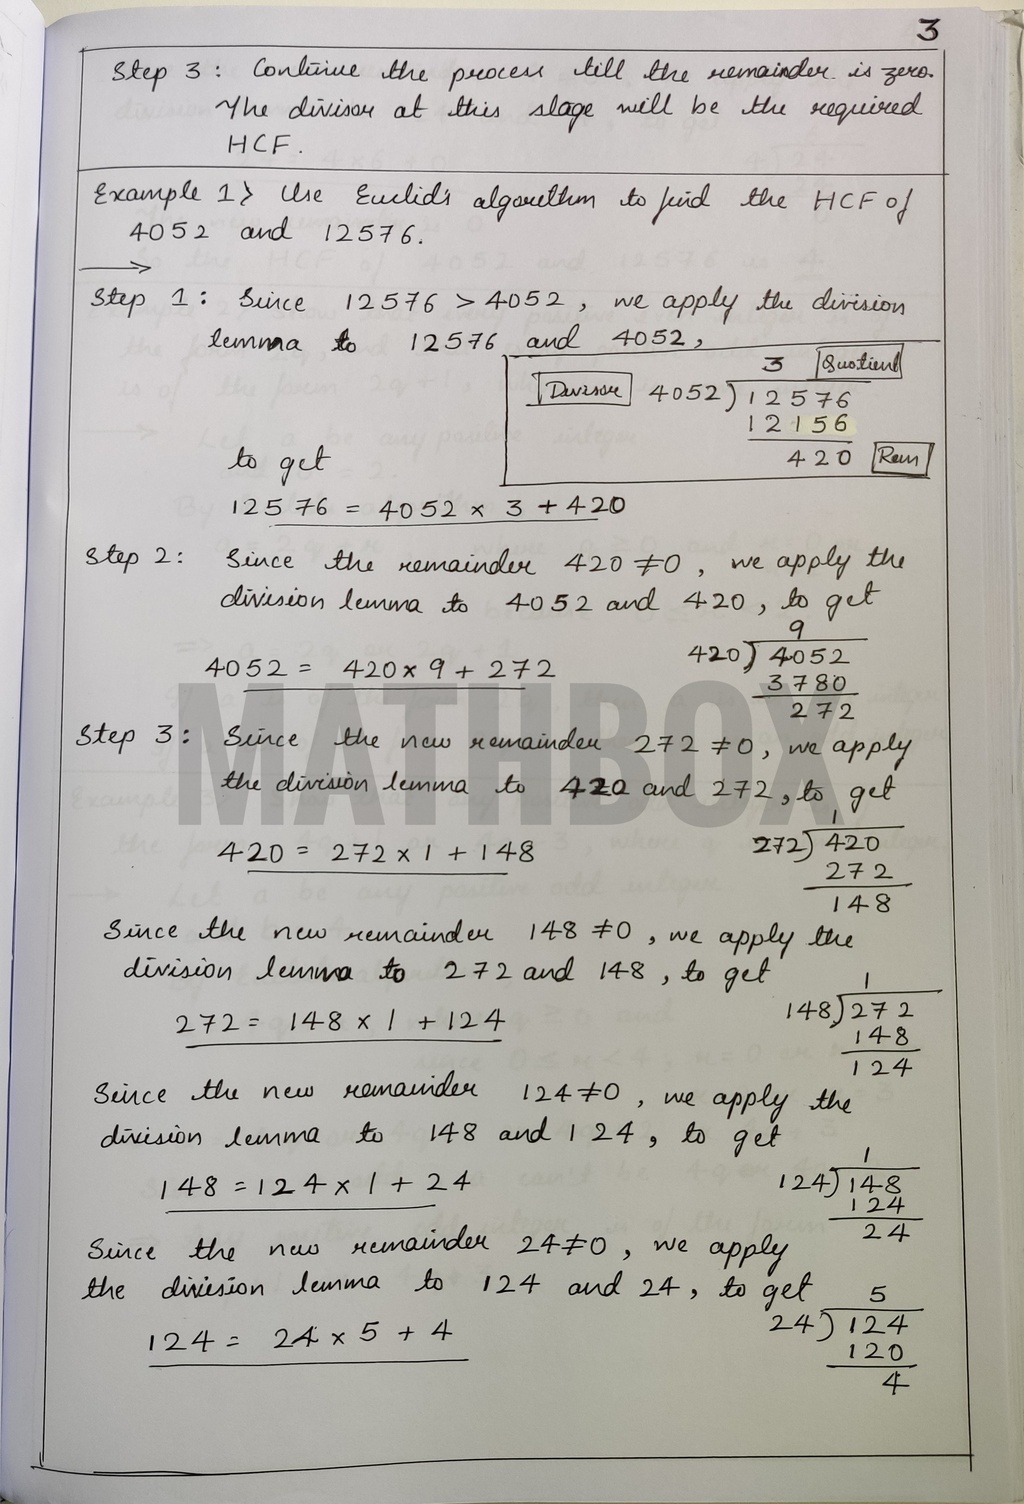 3
Step 3 : Continue the process till the remainder is zero.
The divisor at this stage will be the required
HCF.
Example 1> Use Euclid's algorithm to find the HCF of
4052 and 12576.
Step 1 : Since 12576 > 4052, we apply the division
lemma to 12576 and 4052,
3 Quotient
Divisor 4052)12576
12156
420 Rem
to get
12576 = 4052 x 3 + 420
Step 2 : Since the remainder 420 ≠ 0, we apply the
division lemma to 4052 and 420, to get
9
420)4052
4052 = 420 x 9 + 272
3780
272
MATHBOX
Step 3 : Since the new remainder 272 ≠ 0, we apply
the division lemma to 420 and 272, to get
1
420 = 272 x 1 + 148
272)420
272
148
Since the new remainder 148 ≠ 0, we apply the
division lemma to 272 and 148, to get
1
272 = 148 x 1 + 124
148)272
148
124
Since the new remainder 124 ≠ 0, we apply the
division lemma to 148 and 124, to get
1
148 = 124 x 1 + 24
124)148
124
24
Since the new remainder 24 ≠ 0, we apply
the division lemma to 124 and 24, to get
5
124 = 24 x 5 + 4
24)124
120
4